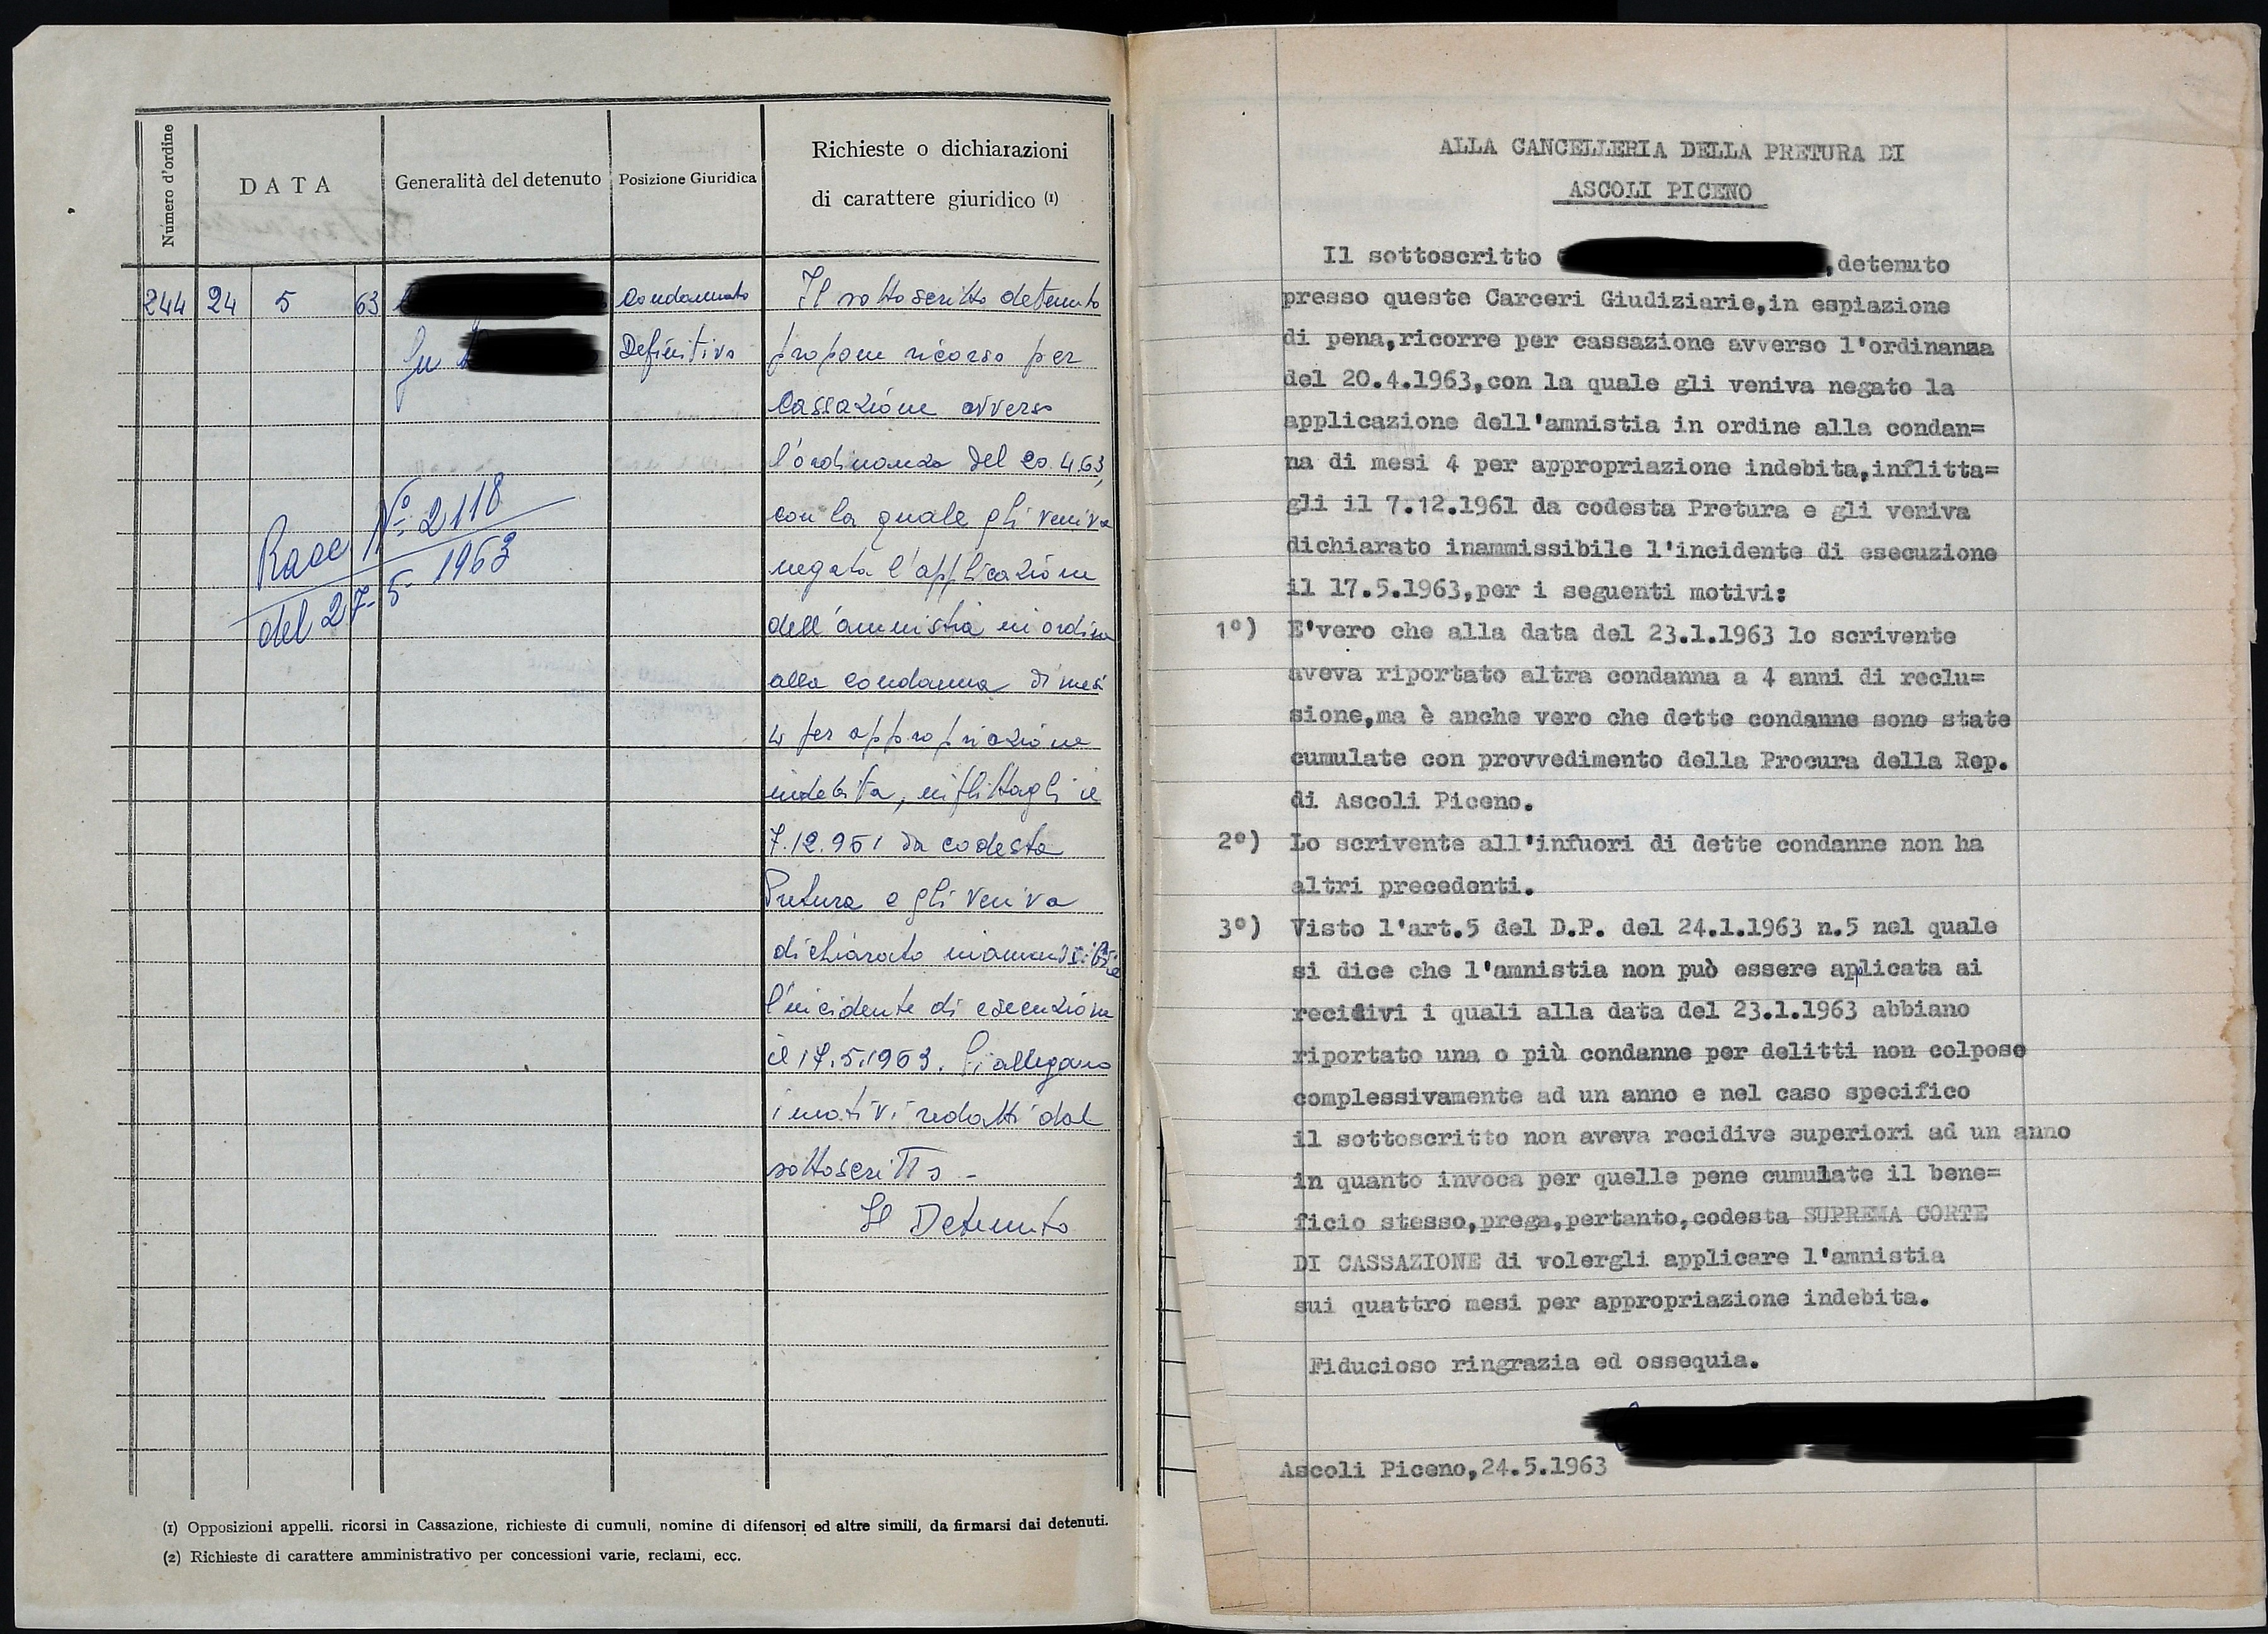 Numero d'ordine
DATA
Generalità del detenuto
Posizione Giuridica
Richieste o dichiarazioni
di carattere giuridico (1)
244 24 5 63
Condannato
Definitivo
fu
Racc. Nº 2118
del 27-5-1963
Il sottoscritto detenuto
propone ricorso per
Cassazione avverso
l'ordinanza del 20.4.63,
con la quale gli veniva
negata l'applicazione
dell'amnistia in ordine
alla condanna di mesi
4 per appropriazione
indebita, inflittagli il
7.12.961 da codesta
Pretura e gli veniva
dichiarato inammissibile
l'incidente di esecuzione
il 17.5.1963. Si allegano
i motivi redatti dal
sottoscritto -
Il Detenuto
(1) Opposizioni appelli. ricorsi in Cassazione, richieste di cumuli, nomine di difensori ed altre simili, da firmarsi dai detenuti.
(2) Richieste di carattere amministrativo per concessioni varie, reclami, ecc.
ALLA CANCELLERIA DELLA PRETURA DI
ASCOLI PICENO
Il sottoscritto ,detenuto
presso queste Carceri Giudiziarie,in espiazione
di pena,ricorre per cassazione avverso l'ordinanza
del 20.4.1963,con la quale gli veniva negato la
applicazione dell'amnistia in ordine alla condan=
na di mesi 4 per appropriazione indebita,inflitta=
gli il 7.12.1961 da codesta Pretura e gli veniva
dichiarato inammissibile l'incidente di esecuzione
il 17.5.1963,per i seguenti motivi:
1º) E'vero che alla data del 23.1.1963 lo scrivente
aveva riportato altra condanna a 4 anni di reclu=
sione,ma è anche vero che dette condanne sono state
cumulate con provvedimento della Procura della Rep.
di Ascoli Piceno.
2º) Lo scrivente all'infuori di dette condanne non ha
altri precedenti.
3º) Visto l'art.5 del D.P. del 24.1.1963 n.5 nel quale
si dice che l'amnistia non può essere applicata ai
recidivi i quali alla data del 23.1.1963 abbiano
riportato una o più condanne per delitti non colpose
complessivamente ad un anno e nel caso specifico
il sottoscritto non aveva recidive superiori ad un anno
in quanto invoca per quelle pene cumulate il bene=
ficio stesso,prega,pertanto,codesta SUPREMA CORTE
DI CASSAZIONE di volergli applicare l'amnistia
sui quattro mesi per appropriazione indebita.
Fiducioso ringrazia ed ossequia.
Ascoli Piceno,24.5.1963